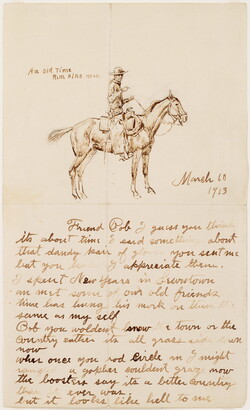 An old Time
March 10
1913
Friend Bob I guess you think
its about time I said something about
that dandy pair of gloves you sent me
but you I appreciate them.
I spent New Years in
an met some of our old friends
time has his mark on them the
same as my self
Bob you woldent know the town or the
country either its all grass side down
now
wher once you rod circle an I might
a gopher couldent graze now
the boosters say its a better country
than it ever was
but it looks like hell to me